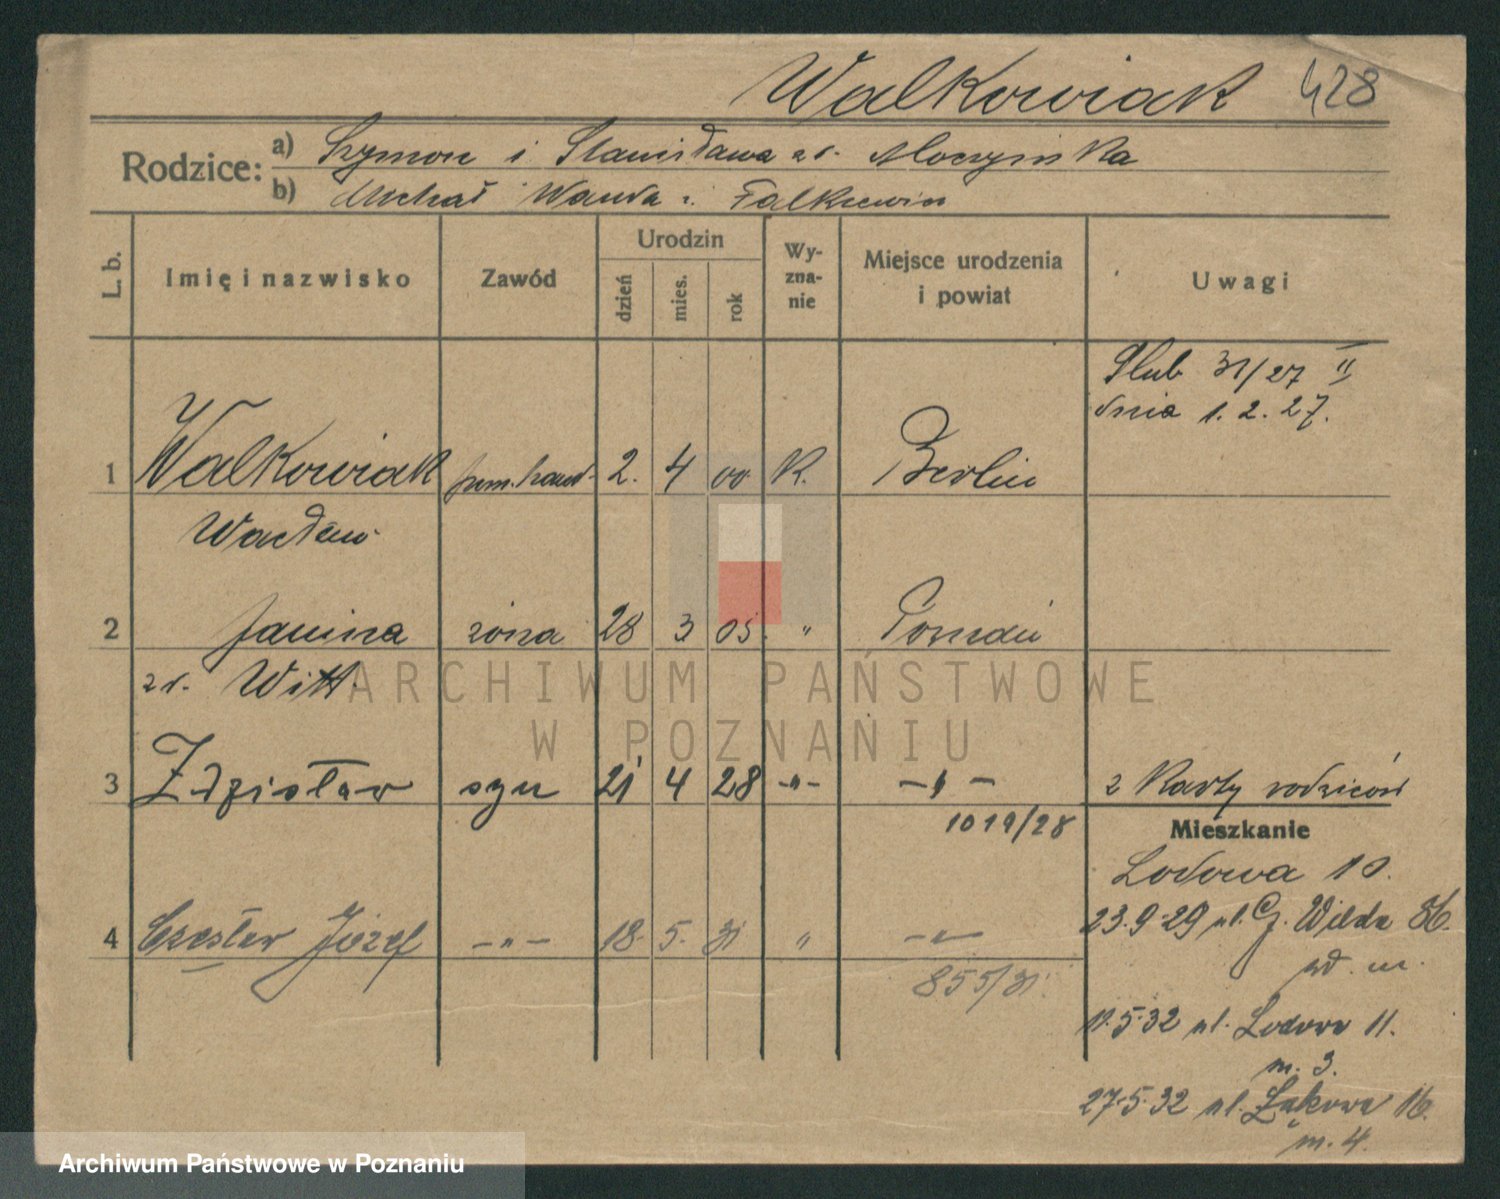 Walkowiak 428
Rodzice:
a) Szymon i Stanisława zd. Moczyńska
b) Michał Wanda z. Falkiewicz
L. b.
Imię i nazwisko
Zawód
Urodzin
dzień
mies.
rok
Wy-
zna-
nie
Miejsce urodzenia
i powiat
Uwagi
Ślub 31/27 II
dnia 1.2.27.
1 Walkowiak pom. hand. 2. 4 00 K. Berlin
Wacław
2 Janina żona 28 3 05. " Poznań
zd. Witt.
3 Zdzisław syn 21 4 28 -"- -"-
z karty rodziców
1019/28
Mieszkanie
Lodowa 10.
23.9.29 ul. G. Wilda 86.
4 Czesław Józef -"- 18. 5. 31 " -"-
855/31.
11.5.32 ul. Lodowa 11.
m. 3.
27.5.32 ul. Łąkowa 16.
m. 4.
ARCHIWUM PAŃSTWOWE
W POZNANIU
Archiwum Państwowe w Poznaniu